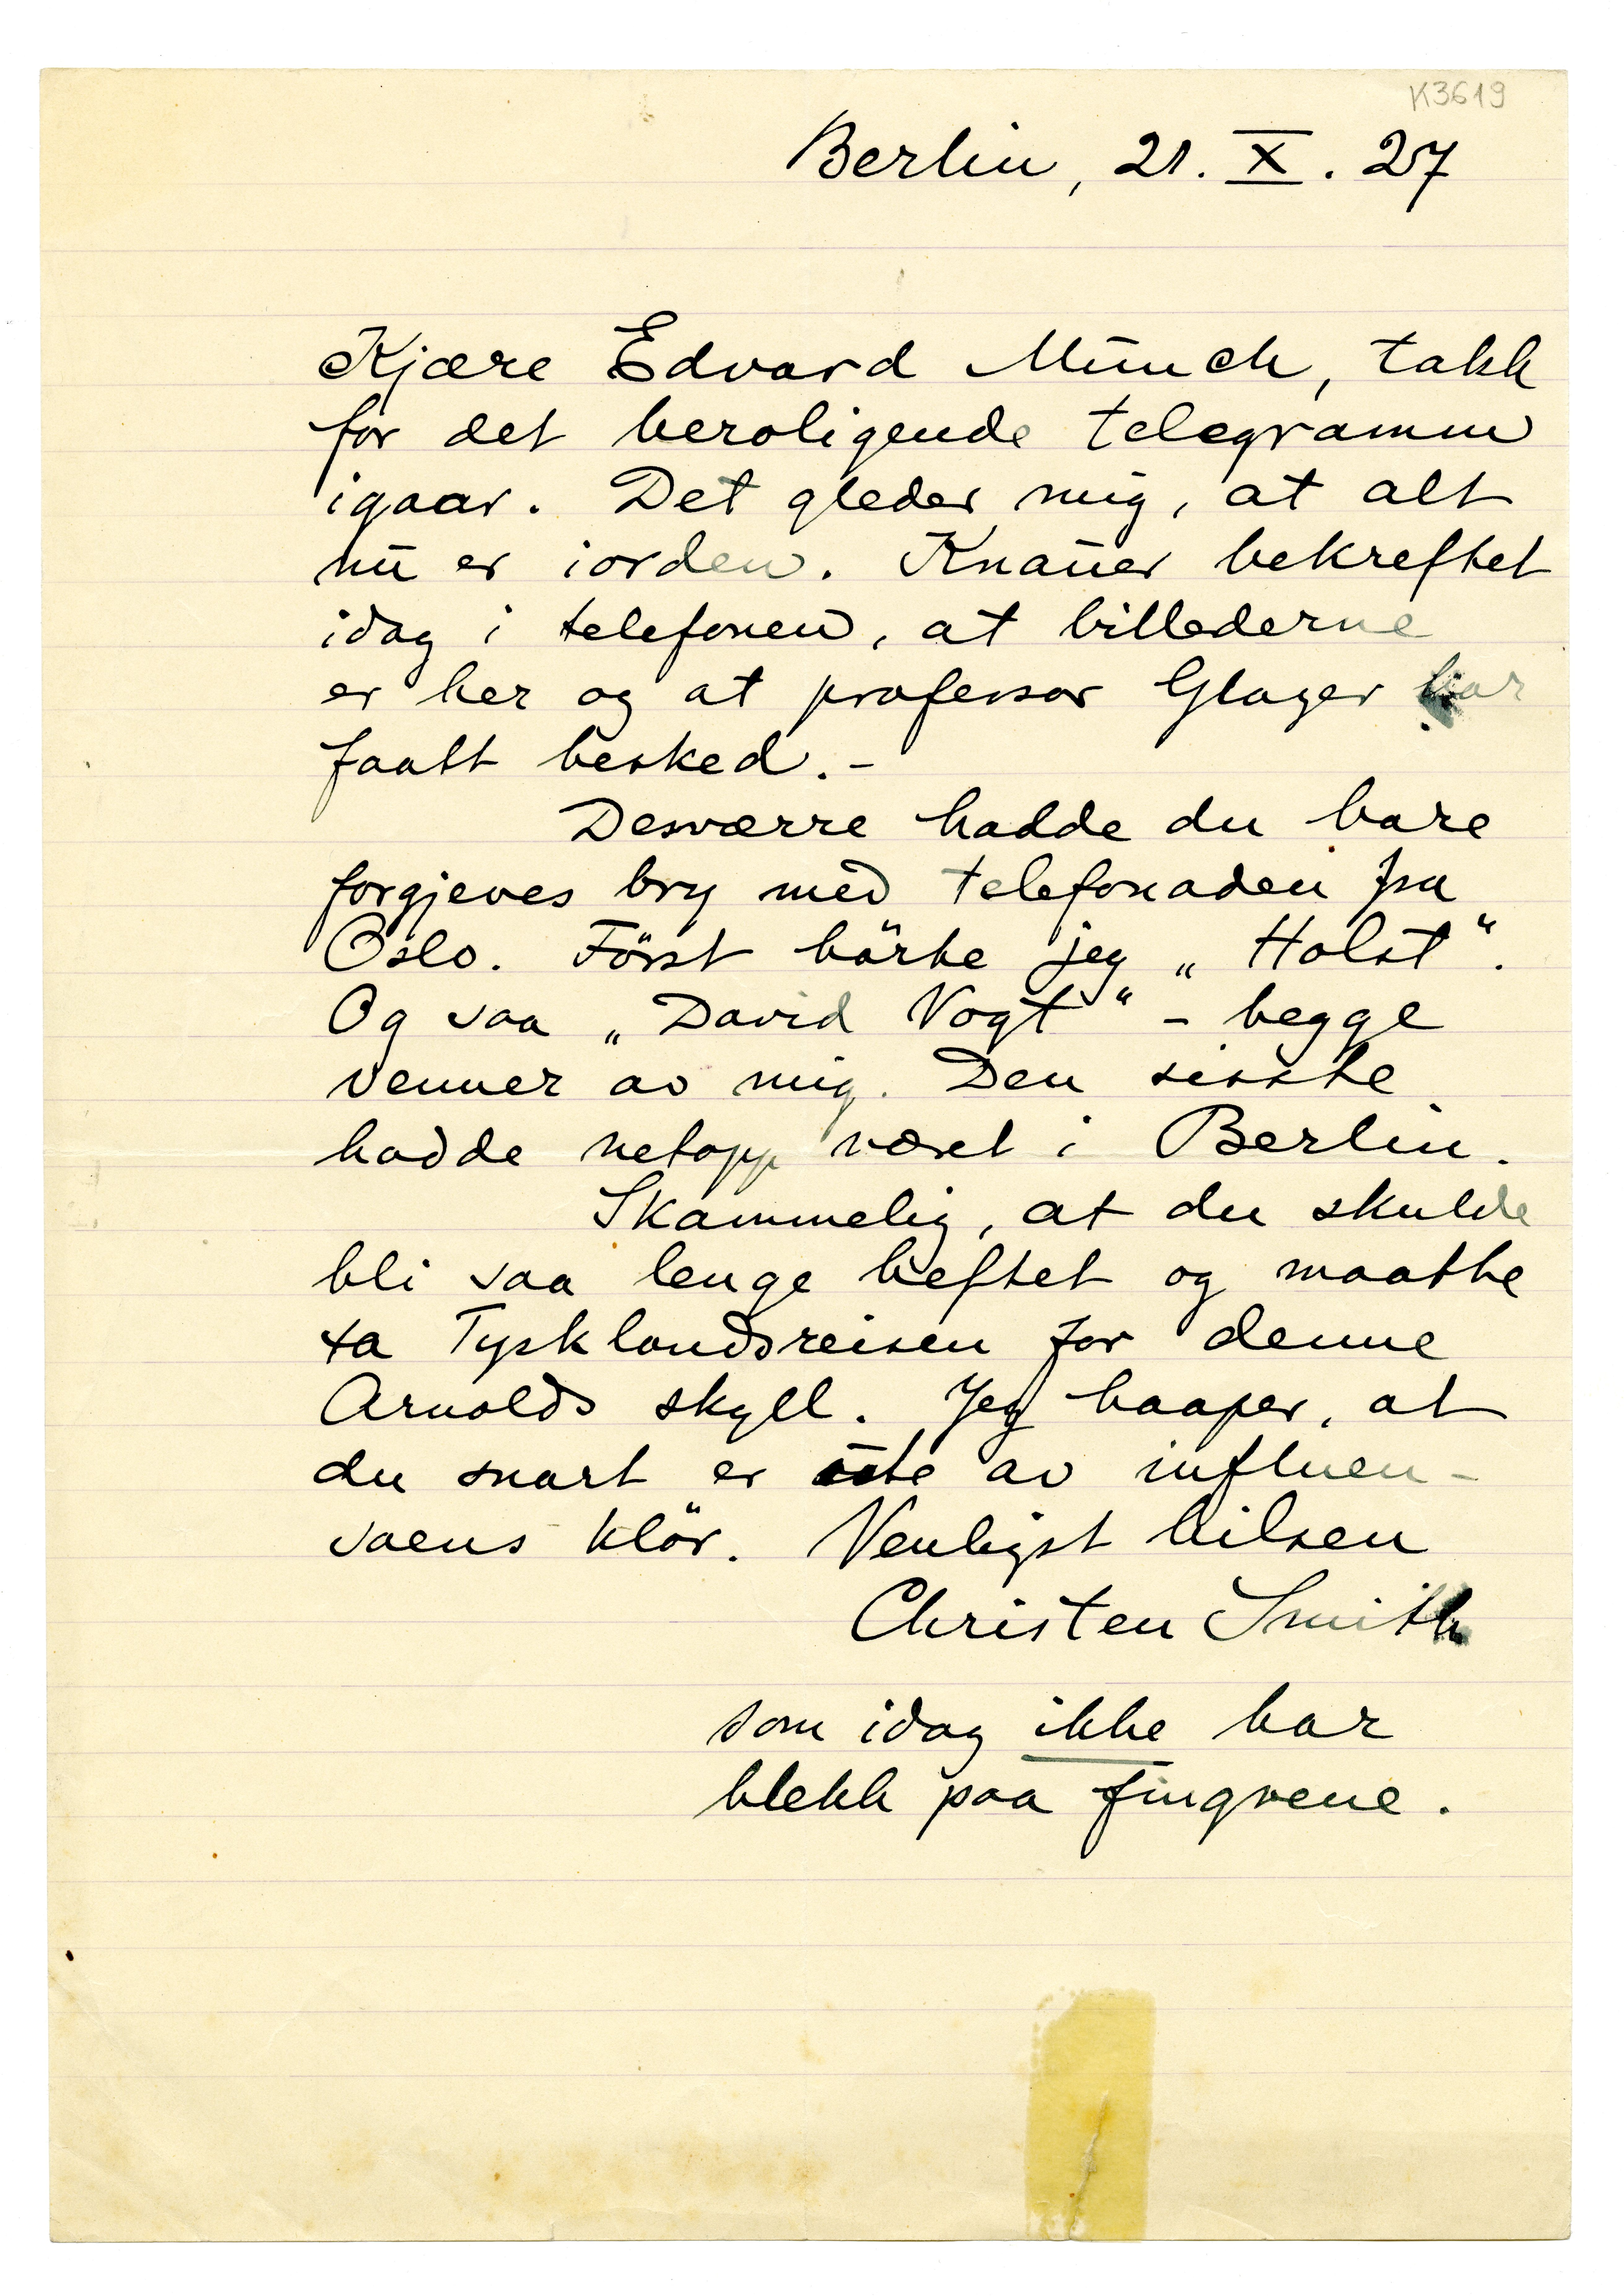 K3619
Berlin, 21. X. 27
Kjære Edvard Munch, takk
for det beroligende telegramm
igaar. Det gleder mig, at alt
nu er iorden. Knauer bekreftet
idag i telefonen, at billederne
er her og at professor Glaser har
faatt besked.-
Desværre hadde du bare
forgjeves bry med telefonaden fra
Oslo. Först hörte jeg „Holst“.
Og saa „David Vogt“ - begge
venner av mig. Den sisste
hadde netopp været i Berlin.
Skammelig, at du skulde
bli saa lenge heftet og maatte
ta Tysklandsreisen for denne
Arnolds skyll. Jeg haaper, at
du snart er ute av influen-
saens klör. Venligst hilsen
Christen Smith
som idag ikke har
blekk paa fingrene.